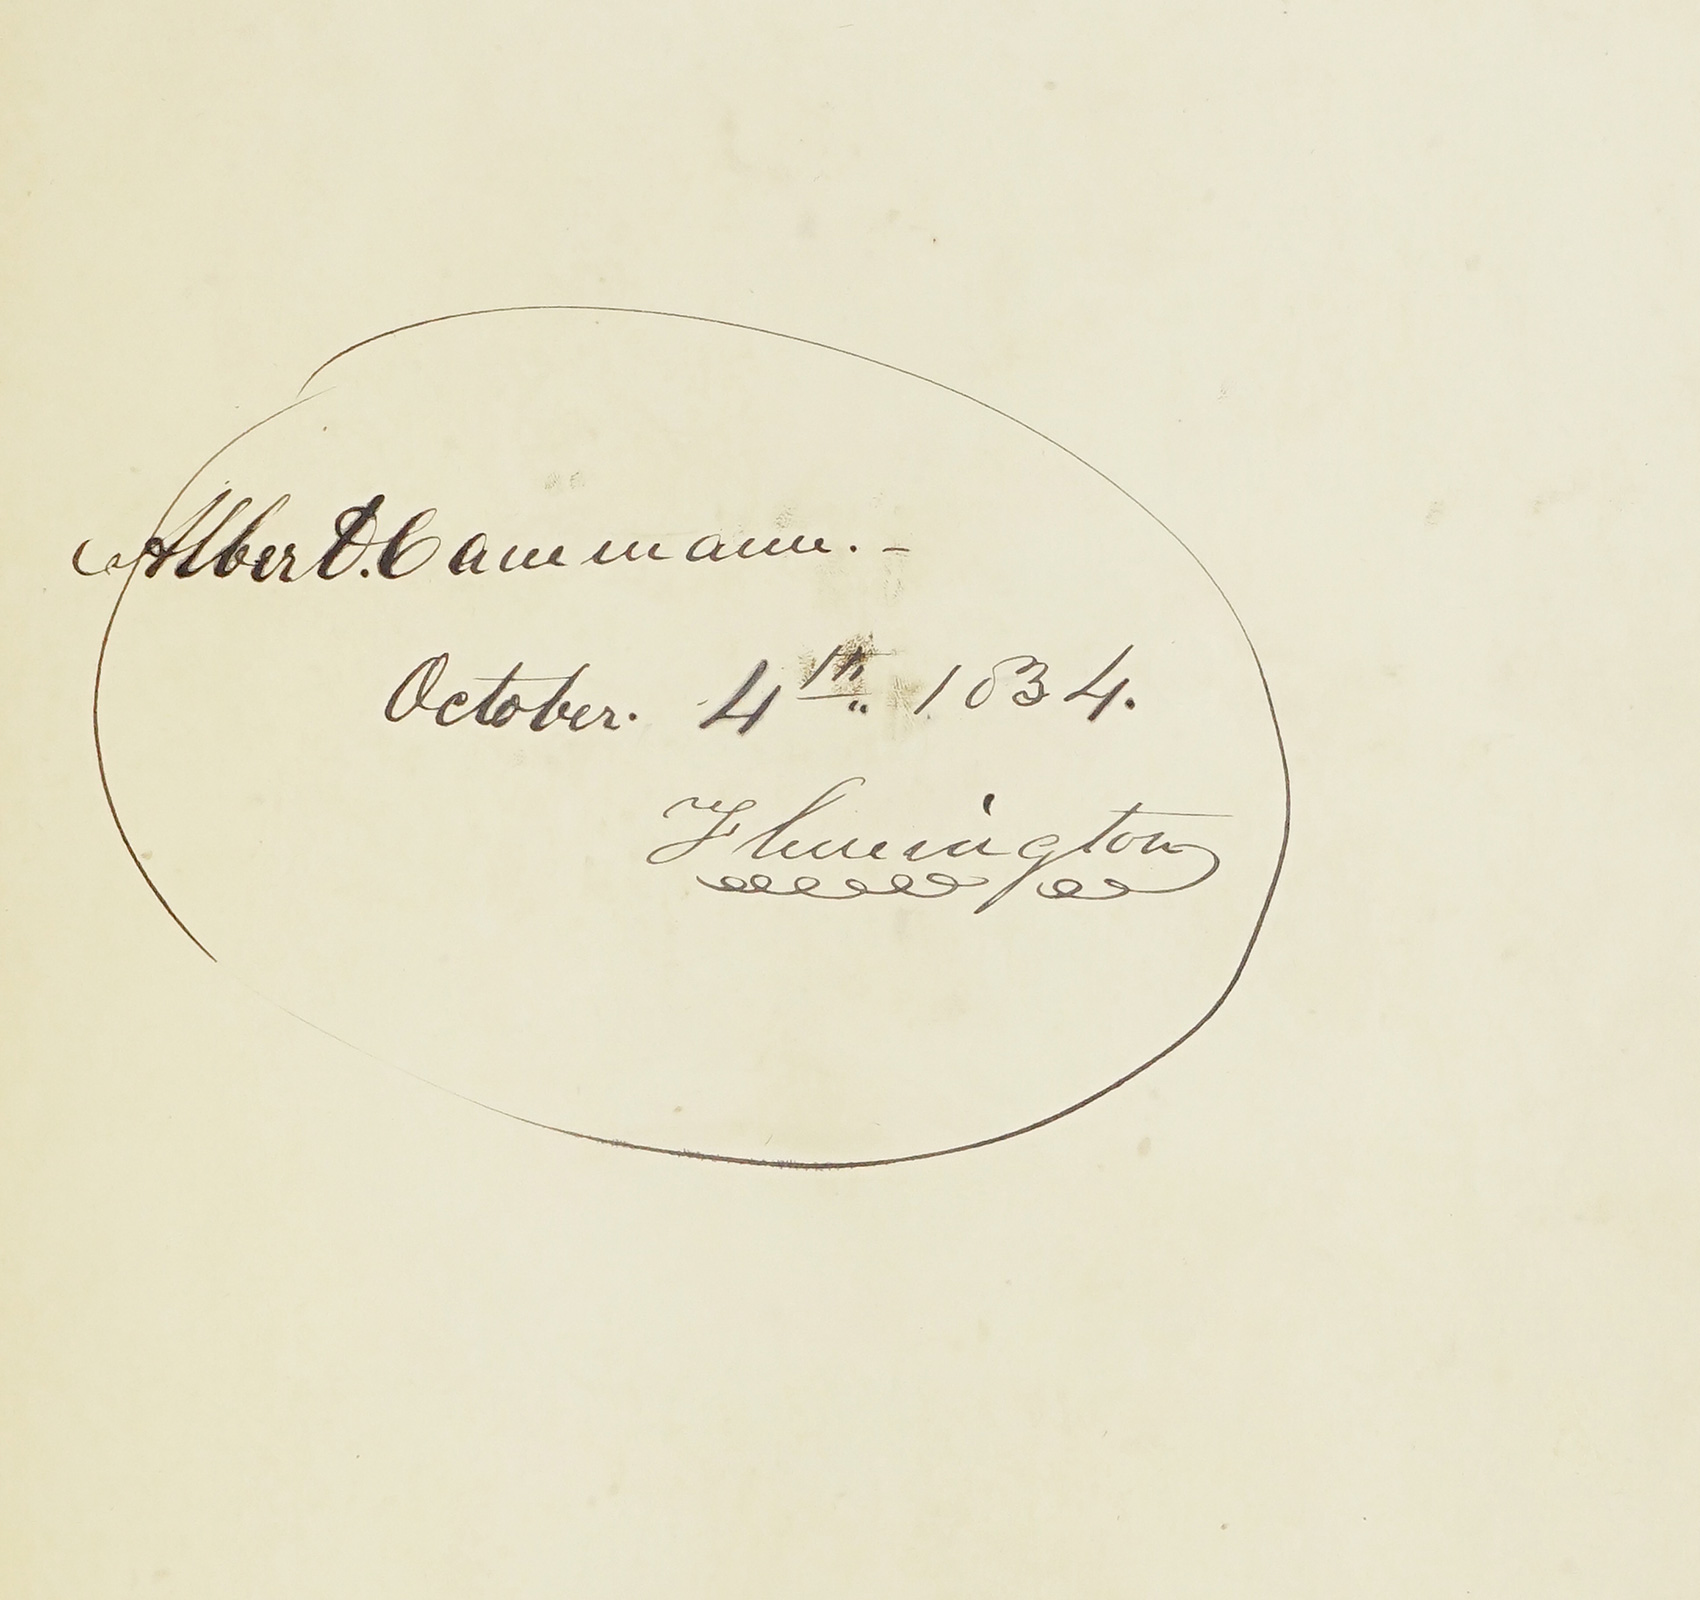 Albert D. Cammann. -
October. 4th 1834.
Flemington